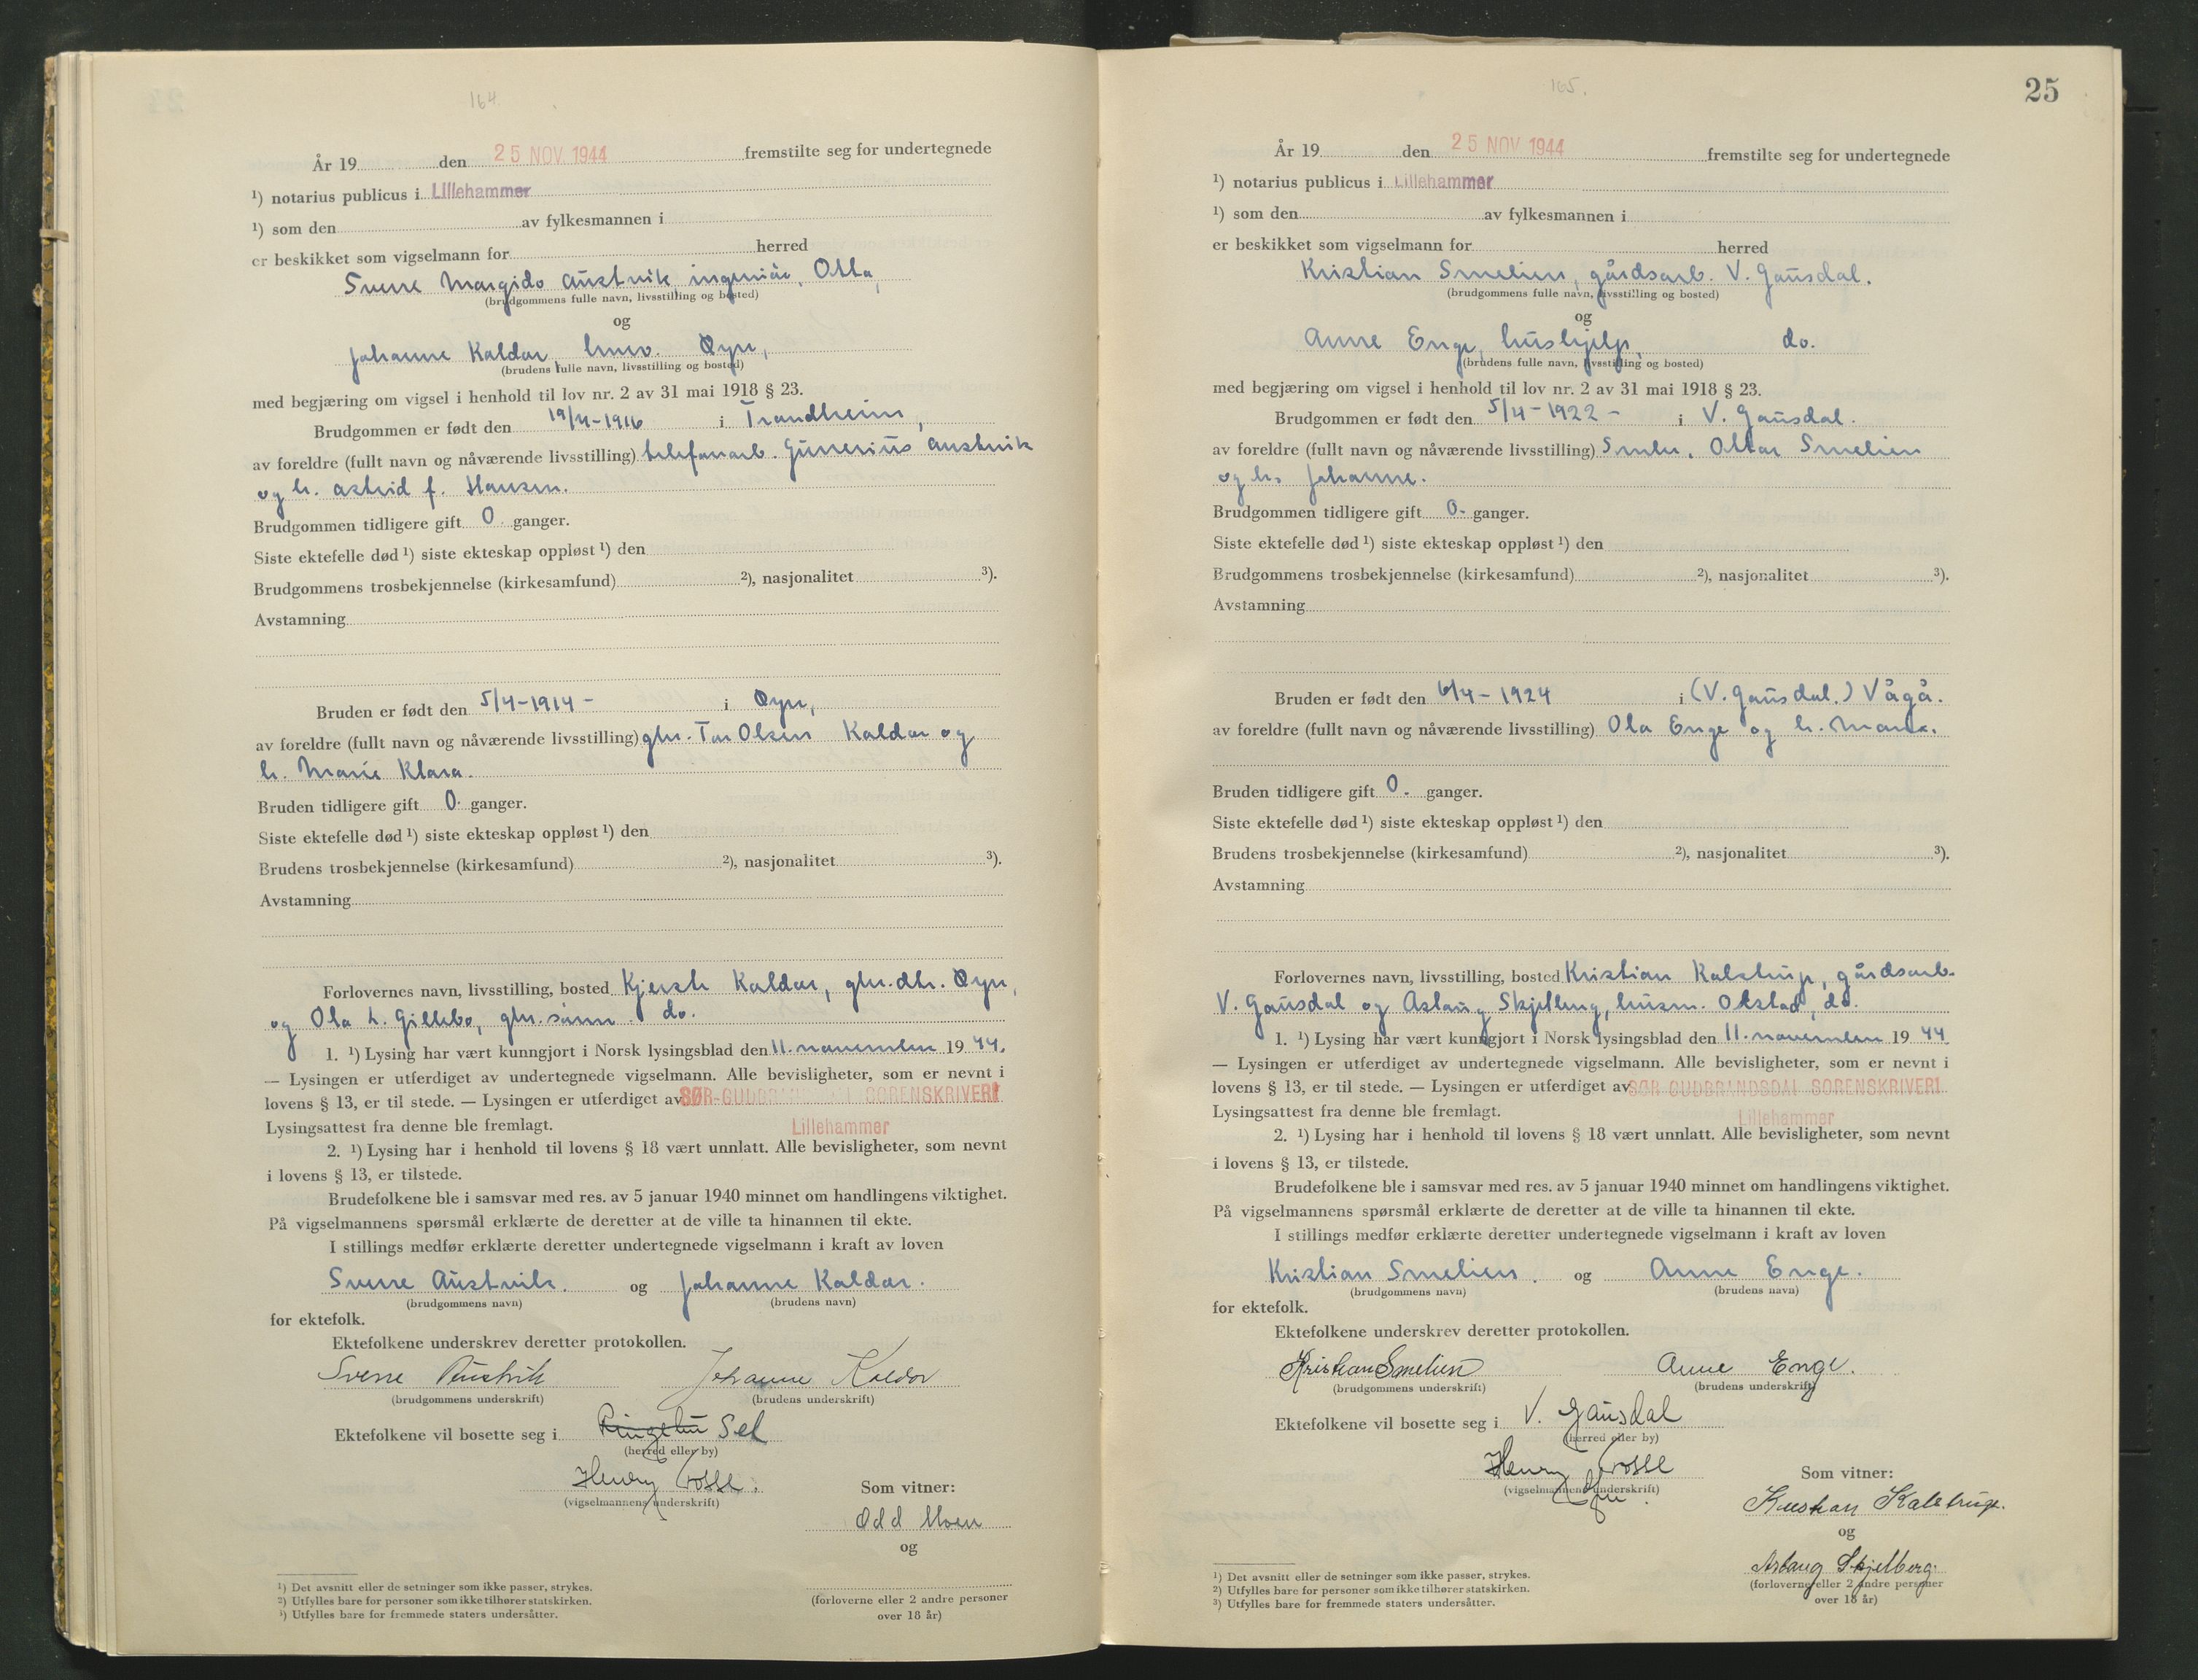 164.
År 19 den 25 NOV 1944 fremstilte seg for undertegnede
¹) notarius publicus i Lillehammer
¹) som den av fylkesmannen i
er beskikket som vigselmann for herred
Sverre Margido Austvik ingeniör, Otta,
(brudgommens fulle navn, livsstilling og bosted)
og
Johanne Kaldor, Øyer,
(brudens fulle navn, livsstilling og bosted)
med begjæring om vigsel i henhold til lov nr. 2 av 31 mai 1918 § 23.
Brudgommen er født den 19/4-1916 i Trondheim,
av foreldre (fullt navn og nåværende livsstilling) telefonarb. Gunerius Austvik
og h. Astrid f. Hansen.
Brudgommen tidligere gift 0. ganger.
Siste ektefelle død ¹) siste ekteskap oppløst ¹) den
Brudgommens trosbekjennelse (kirkesamfund) ²), nasjonalitet ³).
Avstamning
Bruden er født den 5/4-1914- i Øyer,
av foreldre (fullt navn og nåværende livsstilling) gbr. Tor Olsen Kaldor og
h. Marie Klara.
Bruden tidligere gift 0. ganger.
Siste ektefelle død ¹) siste ekteskap oppløst ¹) den
Brudens trosbekjennelse (kirkesamfund) ²), nasjonalitet ³).
Avstamning
Forlovernes navn, livsstilling, bosted Kjersti Kaldor, gbr.dtr. Øyer,
og Ola L. Gillebo, gbr.sönn do.
1. ¹) Lysing har vært kunngjort i Norsk lysingsblad den 11. november 1944.
— Lysingen er utferdiget av undertegnede vigselmann. Alle bevisligheter, som er nevnt i
lovens § 13, er til stede. — Lysingen er utferdiget av SØR-GUDBRANDSDAL SORENSKRIVERI
Lysingsattest fra denne ble fremlagt. Lillehammer
2. ¹) Lysing har i henhold til lovens § 18 vært unnlatt. Alle bevisligheter, som nevnt
i lovens § 13, er tilstede.
Brudefolkene ble i samsvar med res. av 5 januar 1940 minnet om handlingens viktighet.
På vigselmannens spørsmål erklærte de deretter at de ville ta hinannen til ekte.
I stillings medfør erklærte deretter undertegnede vigselmann i kraft av loven
Sverre Austvik. og Johanne Kaldor.
(brudgommens navn) (brudens navn)
for ektefolk.
Ektefolkene underskrev deretter protokollen.
Sverre Austvik Johanne Kaldor
(brudgommens underskrift) (brudens underskrift)
Ektefolkene vil bosette seg i Ringebu Sel
(herred eller by)
Henry Crosse.
(vigselmannens underskrift)
Som vitner:
Odd Moen
og
(forloverne eller 2 andre personer
over 18 år)
¹) Det avsnitt eller de setninger som ikke passer, strykes.
²) Utfylles bare for personer som ikke tilhører statskirken.
³) Utfylles bare for fremmede staters undersåtter.
165.
25
År 19 den 25 NOV 1944 fremstilte seg for undertegnede
¹) notarius publicus i Lillehammer
¹) som den av fylkesmannen i
er beskikket som vigselmann for herred
Kristian Smelien, gårdsarb. V. Gausdal.
(brudgommens fulle navn, livsstilling og bosted)
og
Anne Enge, hushjelp, do.
(brudens fulle navn, livsstilling og bosted)
med begjæring om vigsel i henhold til lov nr. 2 av 31 mai 1918 § 23.
Brudgommen er født den 5/4-1922- i V. Gausdal.
av foreldre (fullt navn og nåværende livsstilling) Ottar Smelien
og h. Johanne.
Brudgommen tidligere gift 0- ganger.
Siste ektefelle død ¹) siste ekteskap oppløst ¹) den
Brudgommens trosbekjennelse (kirkesamfund) ²), nasjonalitet ³).
Avstamning
Bruden er født den 6/4-1924 i (V. Gausdal.) Vågå.
av foreldre (fullt navn og nåværende livsstilling) Ola Enge og h.
Bruden tidligere gift 0. ganger.
Siste ektefelle død ¹) siste ekteskap oppløst ¹) den
Brudens trosbekjennelse (kirkesamfund) ²), nasjonalitet ³).
Avstamning
Forlovernes navn, livsstilling, bosted Kristian Kalstrup, gårdsarb.
V. Gausdal og Aslaug Skjelberg, husm. Olstad, do.
1. ¹) Lysing har vært kunngjort i Norsk lysingsblad den 11. november 1944
— Lysingen er utferdiget av undertegnede vigselmann. Alle bevisligheter, som er nevnt i
lovens § 13, er til stede. — Lysingen er utferdiget av SØR GUDBRANDSDAL SORENSKRIVERI
Lysingsattest fra denne ble fremlagt. Lillehammer
2. ¹) Lysing har i henhold til lovens § 18 vært unnlatt. Alle bevisligheter, som nevnt
i lovens § 13, er tilstede.
Brudefolkene ble i samsvar med res. av 5 januar 1940 minnet om handlingens viktighet.
På vigselmannens spørsmål erklærte de deretter at de ville ta hinannen til ekte.
I stillings medfør erklærte deretter undertegnede vigselmann i kraft av loven
Kristian Smelien. og Anne Enge.
(brudgommens navn) (brudens navn)
for ektefolk.
Ektefolkene underskrev deretter protokollen.
Kristian Smelien Anne Enge.
(brudgommens underskrift) (brudens underskrift)
Ektefolkene vil bosette seg i V. Gausdal
(herred eller by)
Henry Crosse
(vigselmannens underskrift)
Som vitner:
Kristian Kalstrup.
og
Aslaug Skjelberg.
(forloverne eller 2 andre personer
over 18 år)
¹) Det avsnitt eller de setninger som ikke passer, strykes.
²) Utfylles bare for personer som ikke tilhører statskirken.
³) Utfylles bare for fremmede staters undersåtter.